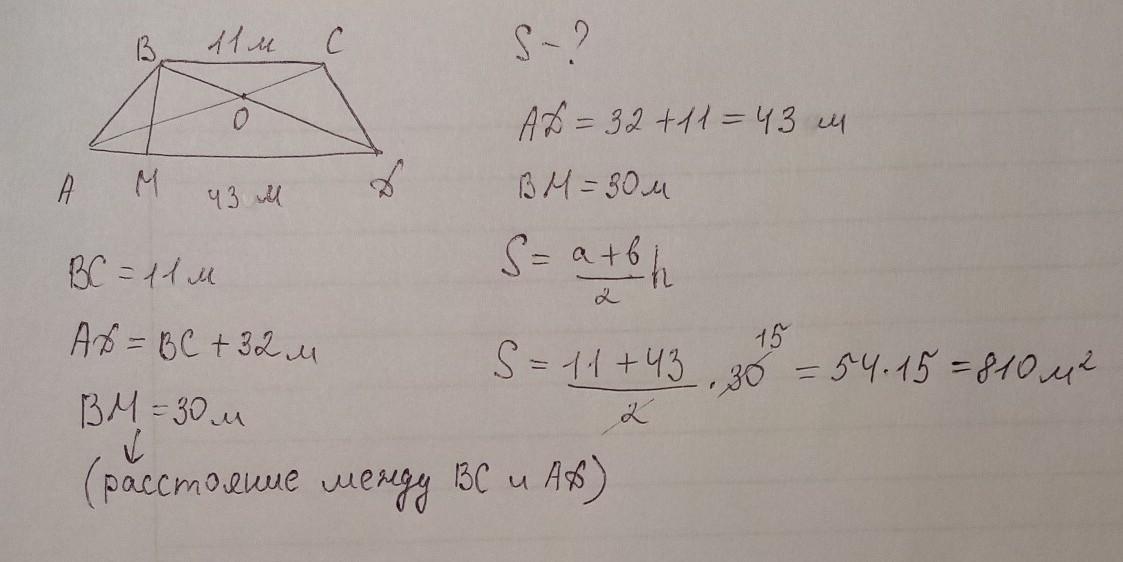 B 11 м C
O
A M 43 м D
BC = 11 м
AD = BC + 32 м
BM = 30 м
↓
(расстояние между BC и AD)
S - ?
AD = 32 + 11 = 43 м
BM = 30 м
S = \frac{a + b}{2} h
S = \frac{11 + 43}{2} · 30 15 = 54 · 15 = 810 м²